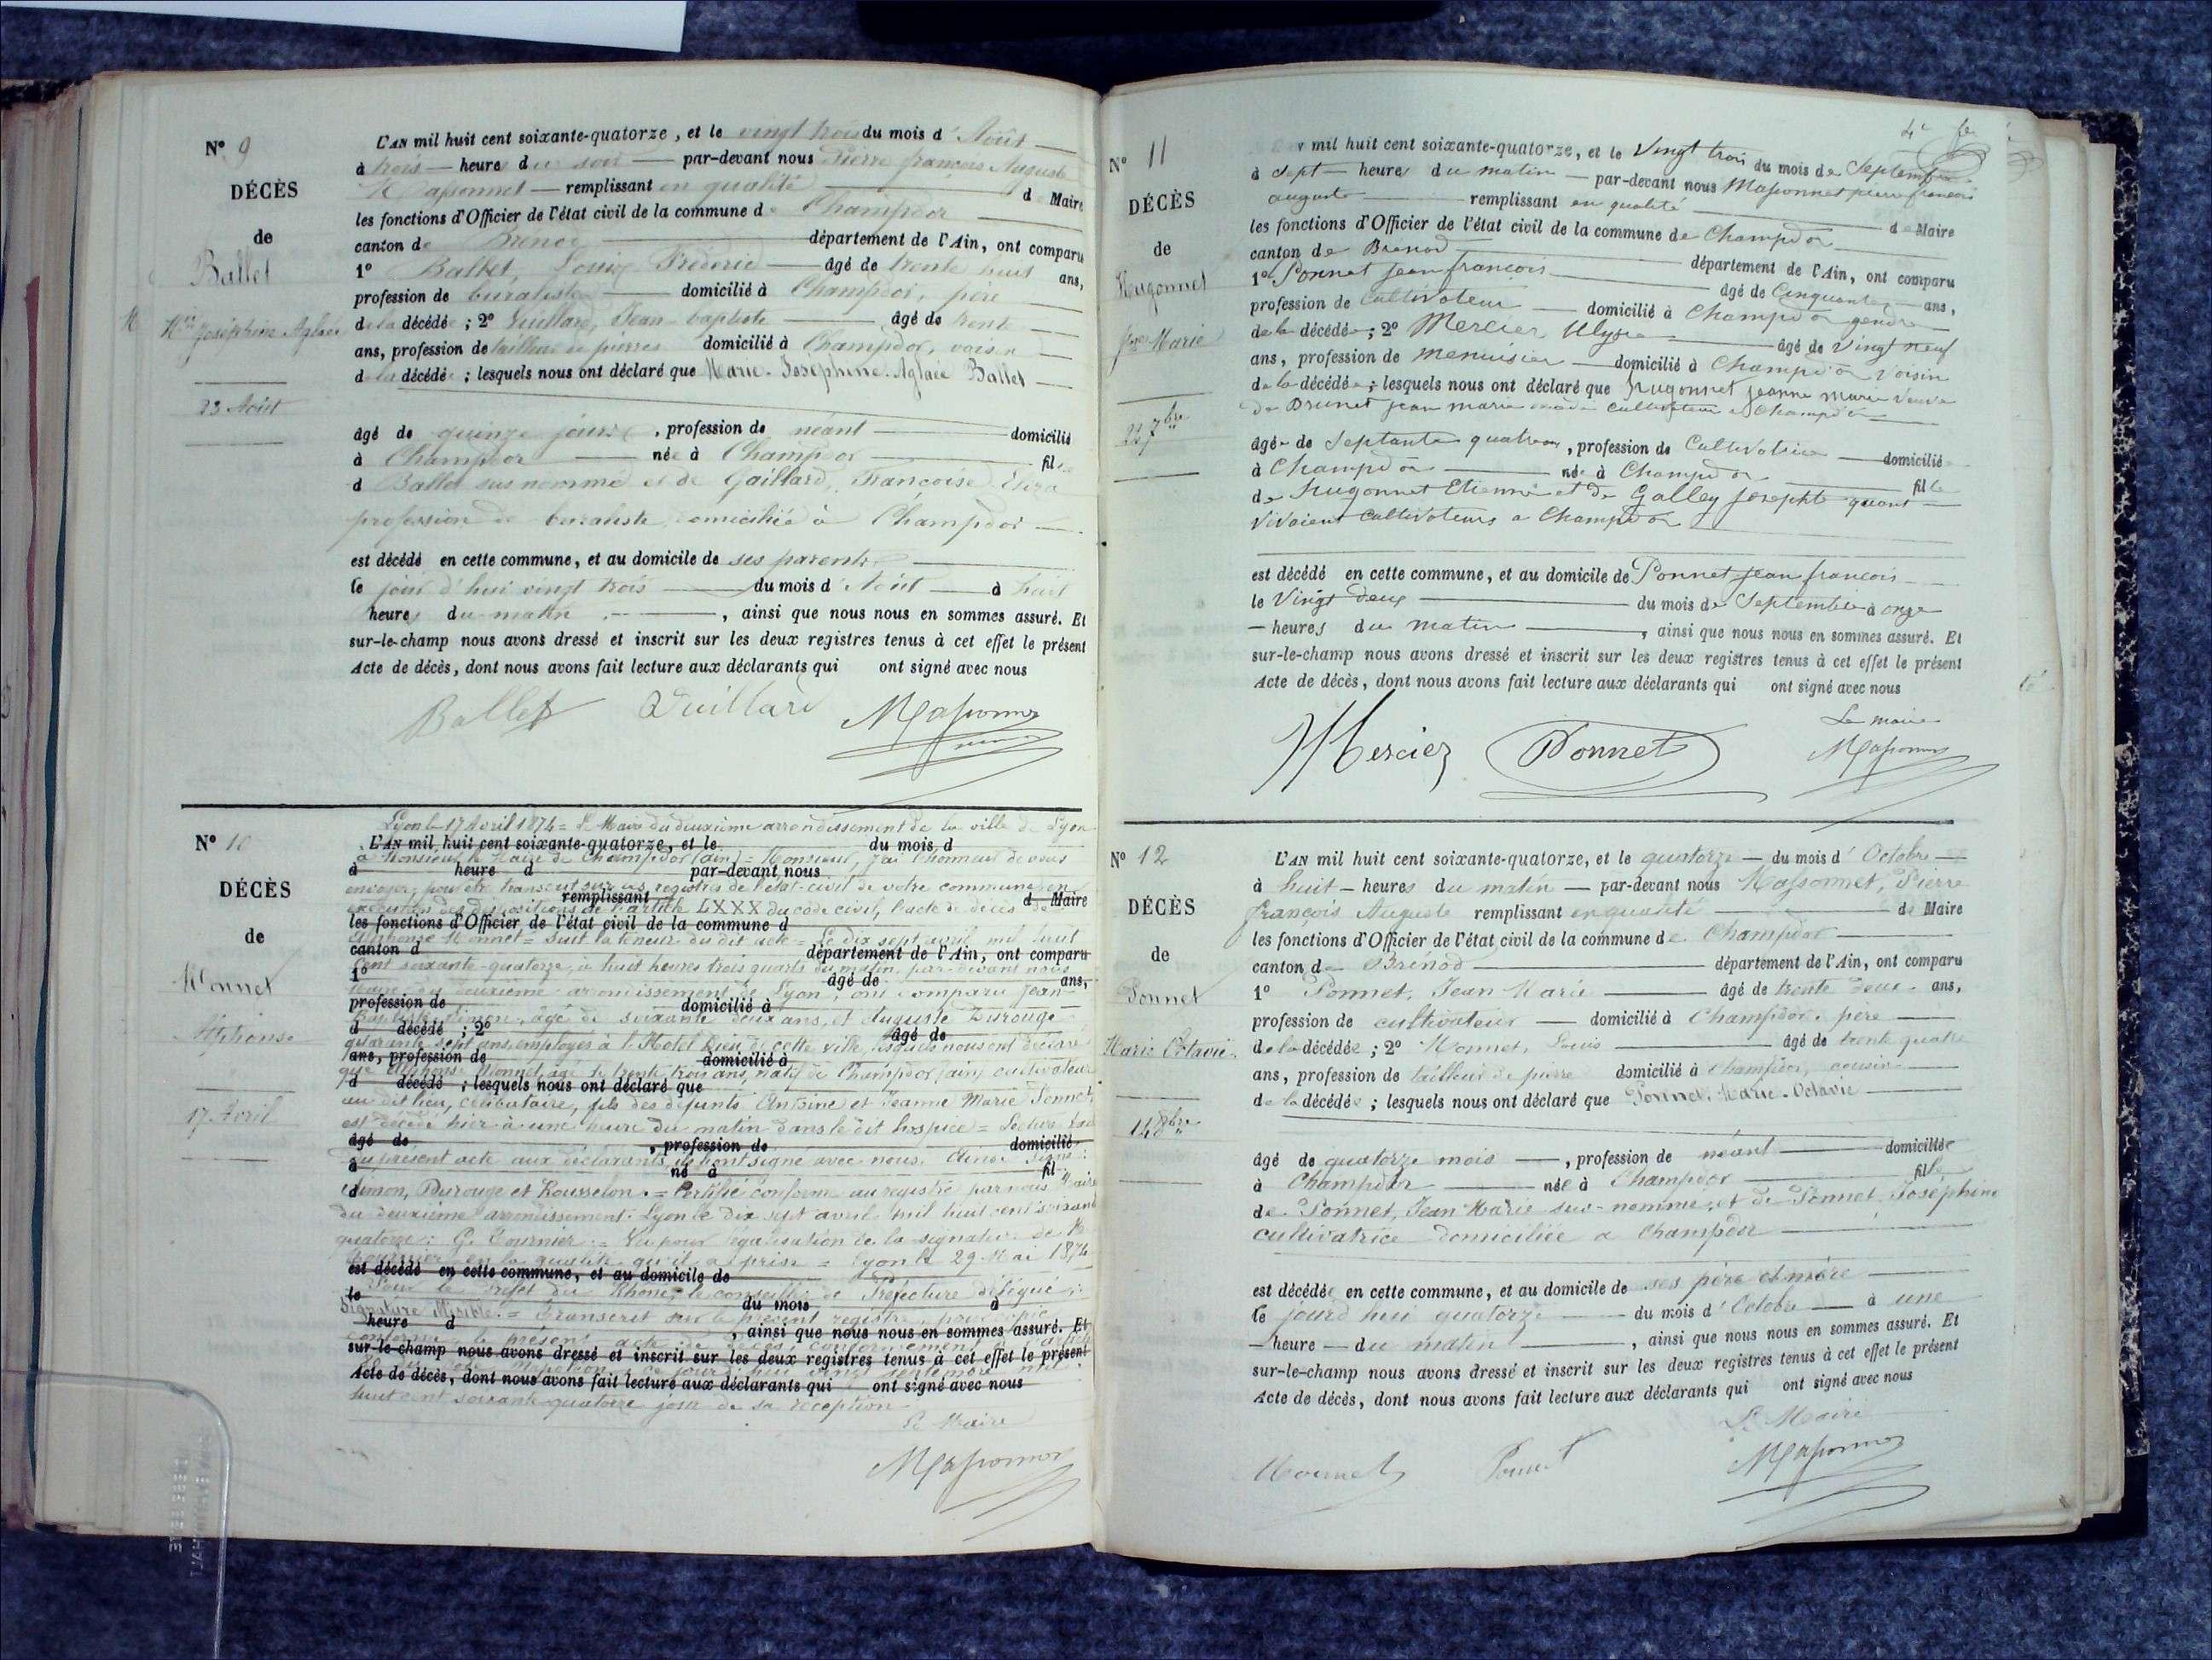 N° 9
DÉCÈS
de
Ballet
Mie Joséphine Aglaée
23 Août
L'AN mil huit cent soixante-quatorze, et le vingt trois du mois d'Août
à trois heures du soir par-devant nous Pierre françois Auguste
Massonnet remplissant en qualité de Maire
les fonctions d'Officier de l'état civil de la commune de Champdor
canton de Brenod département de l'Ain, ont comparu
1° Ballet, Louis Frédéric âgé de trente huit ans,
profession de buraliste domicilié à Champdor, père
de la décédée ; 2° Guillard, Jean baptiste âgé de trente
ans, profession de tailleur de pierres domicilié à Champdor, voisin
de la décédée ; lesquels nous ont déclaré que Marie-Joséphine-Aglaée Ballet
âgé de quinze jours, profession de néant domicilié
à Champdor née à Champdor fille
d Ballet sus nommé et de Gaillard, Françoise Eliza
profession de buraliste domiciliée à Champdor
est décédé en cette commune, et au domicile de ses parents
le jour d'hui vingt trois du mois d'Août à huit
heures du matin, ainsi que nous nous en sommes assuré. Et
sur-le-champ nous avons dressé et inscrit sur les deux registres tenus à cet effet le présent
Acte de décès, dont nous avons fait lecture aux déclarants qui ont signé avec nous
Ballet Guillard Massonnet
N° 10
DÉCÈS
de
Monnet
Alphonse
17 Avril
Lyon le 17 Avril 1874 = Le Maire du deuxième arrondissement de la ville de Lyon
L'AN mil huit cent soixante-quatorze, et le du mois d
à Monsieur le Maire de Champdor (ain) = Monsieur, j'ai l'honneur de vous
à heure d par-devant nous
envoyer, pour être transcrit sur les registres de l'état-civil de votre commune, en
remplissant d Maire
exécution des dispositions de l'article LXXX du code civil, l'acte de décès de
les fonctions d'Officier de l'état civil de la commune d
Alphonse Monnet = Suit la teneur du dit acte = Le dix sept avril mil huit
canton d département de l'Ain, ont comparu
cent soixante-quatorze, à huit heures trois quarts du matin, par-devant nous
1° âgé de ans,
Maire du deuxième arrondissement de Lyon, ont comparu Jean
profession de domicilié à
Baptiste Simon, âgé de soixante deux ans, et Auguste Durouge
d décédé ; 2° âgé de
quarante sept ans, employés à l'Hotel Dieu de cette ville, lesquels nous ont déclaré
ans, profession de domicilié à
que Alphonse Monnet, âgé de trente trois ans, natif de Champdor (ain) cultivateur
d décédé ; lesquels nous ont déclaré que
au dit lieu, célibataire, fils des défunts Antoine et Jeanne Marie Ponnet,
est décédé hier à une heure du matin dans le dit hospice = Lecture faite
âgé de , profession de domicilié
du présent acte aux déclarants, ils l'ont signé avec nous. Ainsi signé :
à né à fil
d
Simon, Durouge et Rousselon. = Certifié conforme au registre par nous Maire
du deuxième arrondissement. Lyon le dix sept avril mil huit cent soixante
quatorze : G. Fournier. = Vu pour légalisation de la signature de M.
Fournier en la qualité qu'il a prise = Lyon le 29 Mai 1874
est décédé en cette commune, et au domicile de
Pour le Préfet du Rhône, le conseiller de Préfecture délégué :
le du mois à
Signature illisible. = Transcrit sur le présent registre, pour copie
heure d , ainsi que nous nous en sommes assuré. Et
conforme le présent acte de décès, conformément
sur-le-champ nous avons dressé et inscrit sur les deux registres tenus à cet effet le présent
ce jourd'hui vingt septembre mil
Acte de décès, dont nous avons fait lecture aux déclarants qui ont signé avec nous
huit cent soixante-quatorze jour de sa réception
Le Maire
Massonnet
N° 11
DÉCÈS
de
Hugonnet
Jne Marie
22 7bre
4e
mil huit cent soixante-quatorze, et le Vingt trois du mois de Septembre
à Sept heures du matin par-devant nous Massonnet pierre francois
auguste remplissant en qualité de Maire
les fonctions d'Officier de l'état civil de la commune de Champdor
canton de Brenod département de l'Ain, ont comparu
1° Ponnet jean francois âgé de Cinquante ans,
profession de Cultivateur domicilié à Champdor gendre
de la décédée ; 2° Mercier Ulysse âgé de Vingt neuf
ans, profession de menuisier domicilié à Champdor Voisin
de la décédée ; lesquels nous ont déclaré que hugonnet jeanne marie veuve
de Brunet jean marie Cultivateur a Champdor
âgée de Septante quatre, profession de Cultivatrice domicilié
à Champdor née à Champdor fille
de hugonnet Etienne et de Galley josephte quant
vivaient Cultivateurs a Champdor
est décédé en cette commune, et au domicile de Ponnet jean francois
le Vingt deux du mois de Septembre à onze
heures du matin, ainsi que nous nous en sommes assuré. Et
sur-le-champ nous avons dressé et inscrit sur les deux registres tenus à cet effet le présent
Acte de décès, dont nous avons fait lecture aux déclarants qui ont signé avec nous
Le maire
Mercier Ponnet Massonnet
N° 12
DÉCÈS
de
Ponnet
Marie Octavie
14 8bre
L'AN mil huit cent soixante-quatorze, et le quatorze du mois d'Octobre
à huit heures du matin par-devant nous Massonnet, Pierre
françois Auguste remplissant en qualité de Maire
les fonctions d'Officier de l'état civil de la commune de Champdor
canton de Brénod département de l'Ain, ont comparu
1° Ponnet, Jean Marie âgé de trente deux ans,
profession de cultivateur domicilié à Champdor, père
de la décédée ; 2° Monnet, Louis âgé de trente quatre
ans, profession de tailleur de pierre domicilié à Champdor, cousin
de la décédée ; lesquels nous ont déclaré que Ponnet, Marie-Octavie
âgé de quatorze mois, profession de néant domiciliée
à Champdor née à Champdor fille
de Ponnet, Jean Marie sus-nommé, et de Ponnet Joséphine
cultivatrice domiciliée a Champdor
est décédée en cette commune, et au domicile de ses père et mère
le jourd'hui quatorze du mois d'Octobre à une
heure du matin, ainsi que nous nous en sommes assuré. Et
sur-le-champ nous avons dressé et inscrit sur les deux registres tenus à cet effet le présent
Acte de décès, dont nous avons fait lecture aux déclarants qui ont signé avec nous
Le Maire
Monnet Ponnet Massonnet